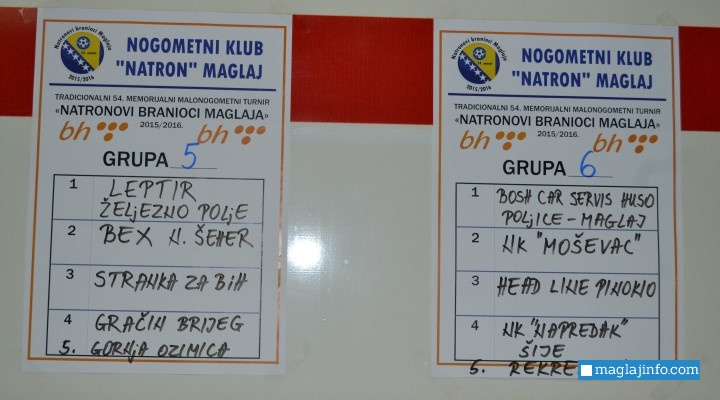 Natronovi branioci Maglaja
2015/2016
NOGOMETNI KLUB
"NATRON" MAGLAJ
TRADICIONALNI 54. MEMORIJALNI MALONOGOMETNI TURNIR
«NATRONOVI BRANIOCI MAGLAJA»
2015/2016.
bh bh
GRUPA 5
1 LEPTIR
ŽELJEZNO POLJE
2 BEX N. ŠEHER
3 STRANKA ZA BIH
4 GRAČIN BRIJEG
5. GORNJA OZIMICA
Natronovi branioci Maglaja
2015/2016
NOGOMETNI KLUB
"NATRON" MAGLAJ
TRADICIONALNI 54. MEMORIJALNI MALONOGOMETNI TURNIR
«NATRONOVI BRANIOCI MAGLAJA»
2015/2016.
bh bh
GRUPA 6
1 BOSH CAR SERVIS HUSO
POLJICE - MAGLAJ
2 NK "MOŠEVAC"
3 HEAD LINE PINOKIO
4 NK "NAPREDAK"
ŠIJE
5.
maglajinfo.com